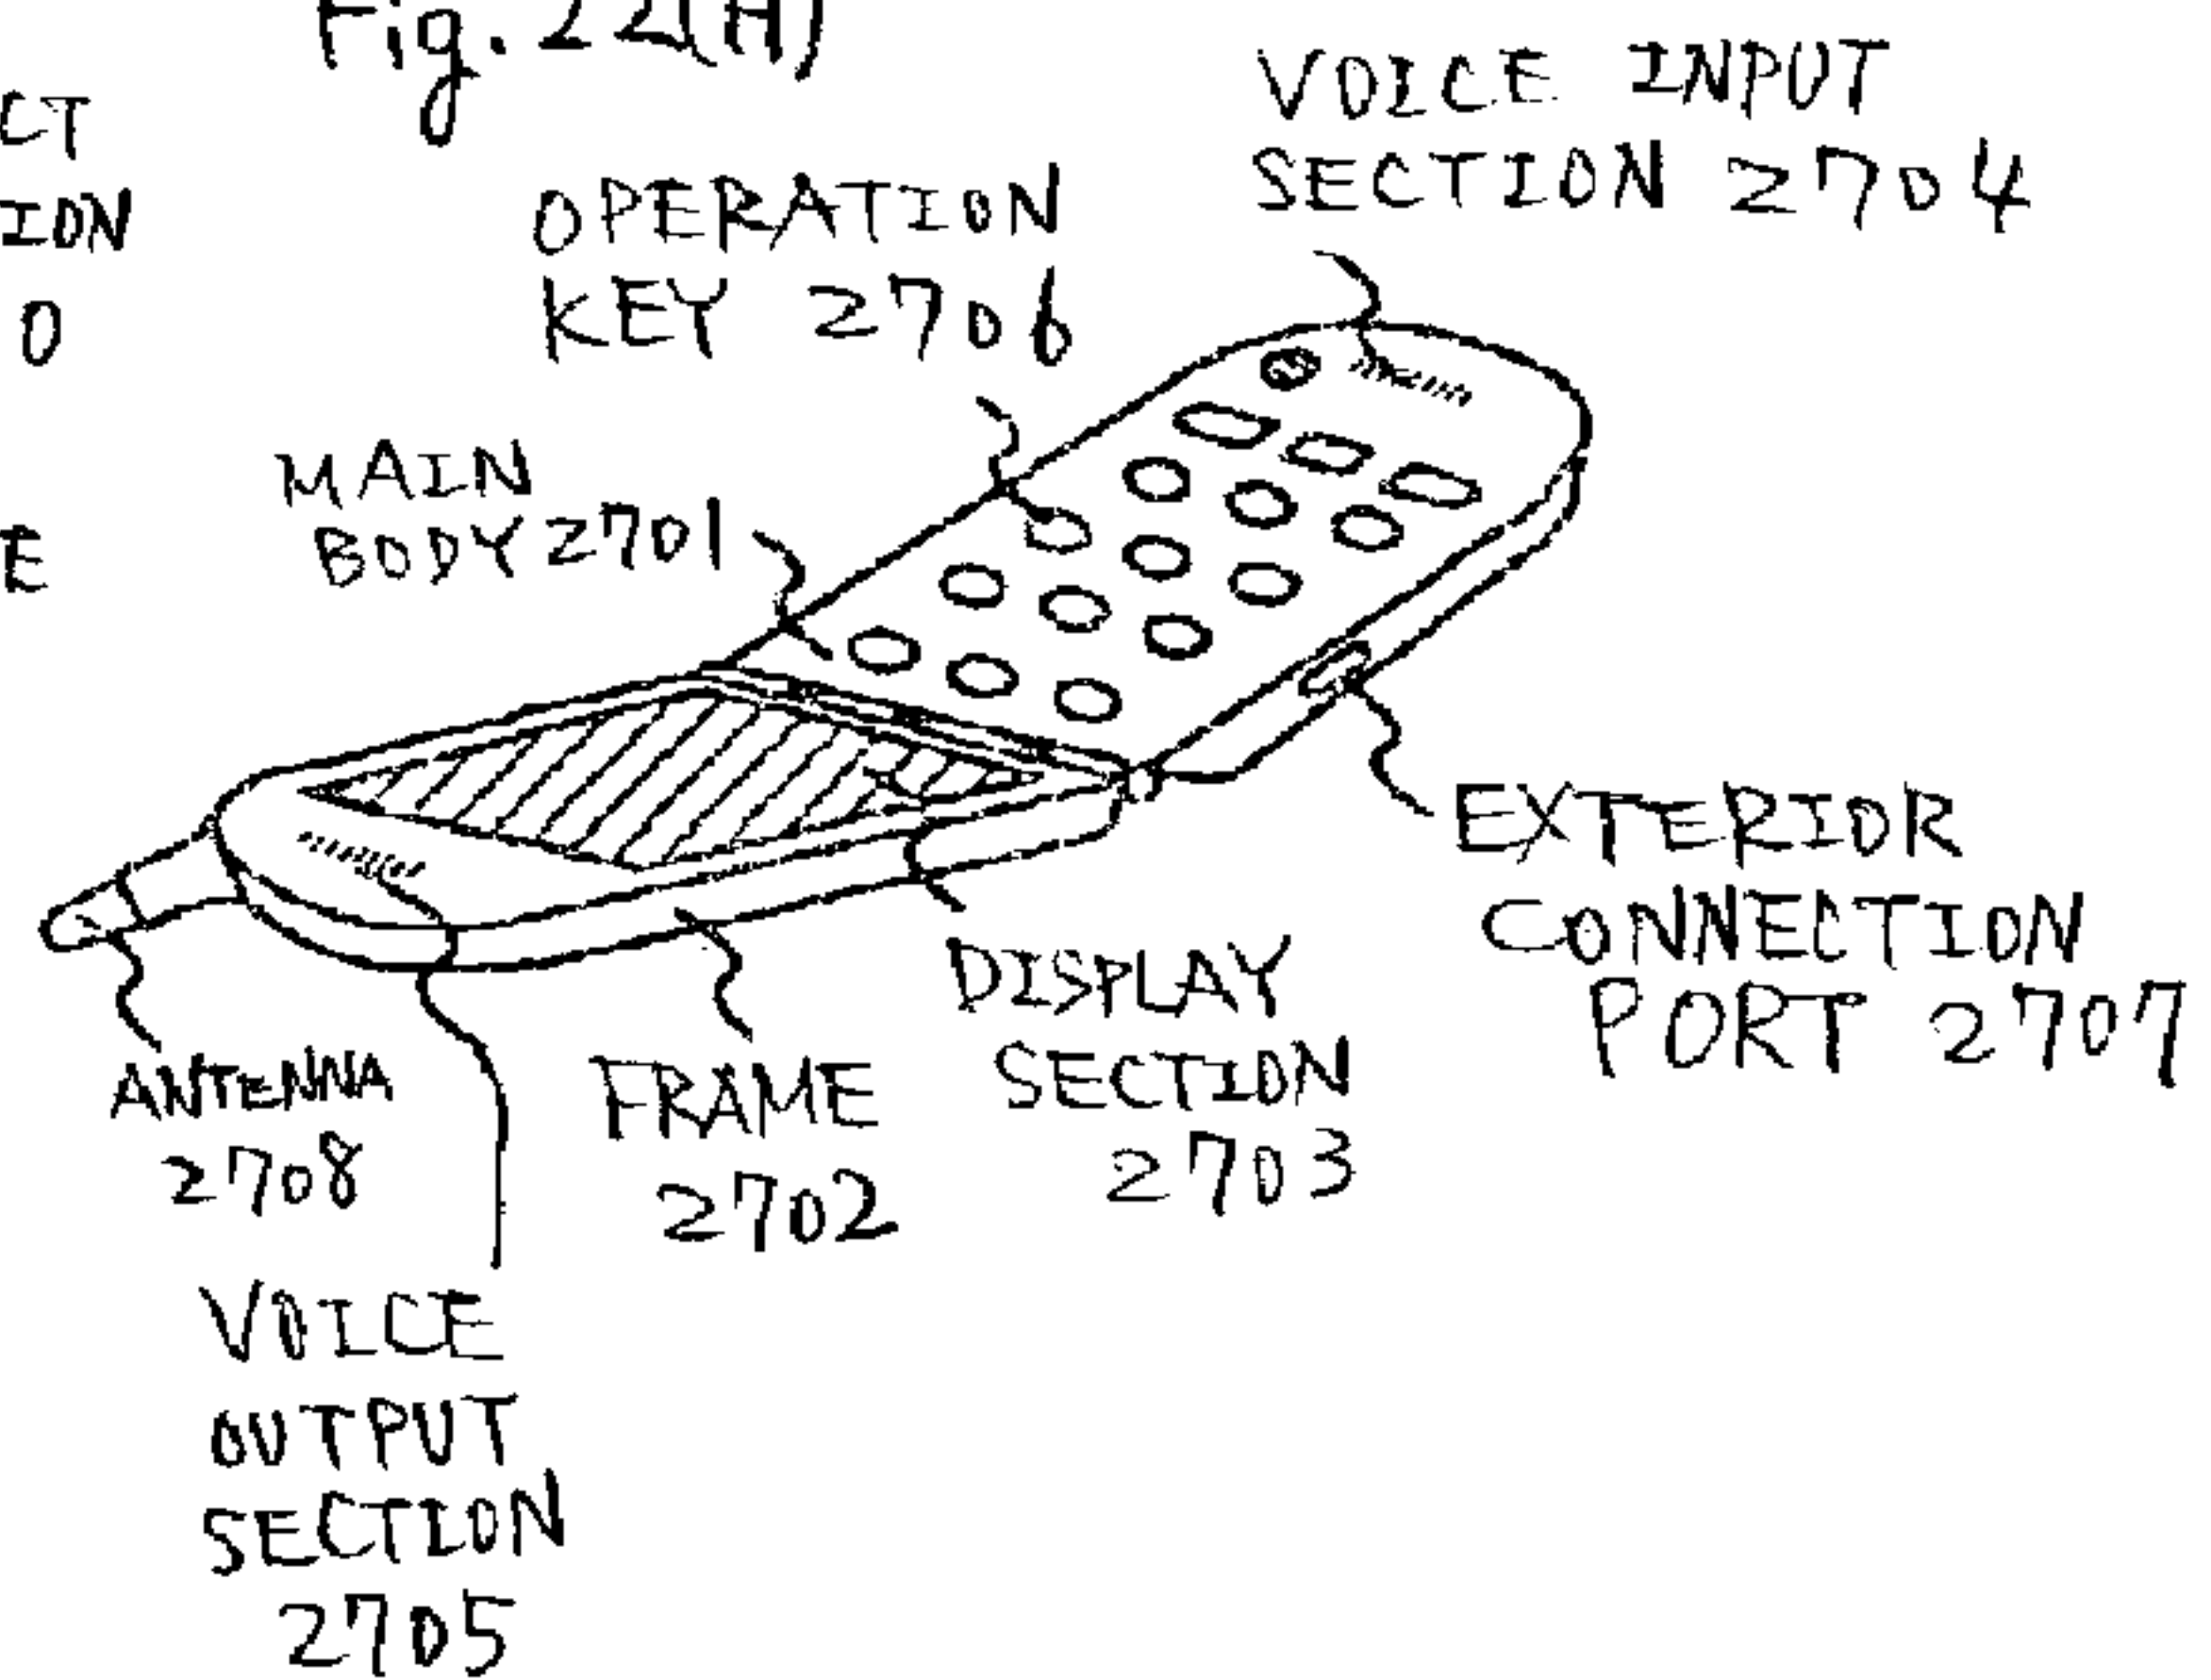 Fig. 22(H)
CT
ION
0
E
VOICE INPUT
SECTION 2704
OPERATION
KEY 2706
MAIN
BODY 2701
EXTERIOR
CONNECTION
PORT 2707
DISPLAY
SECTION
2703
FRAME
2702
ANTENNA
2708
VOICE
OUTPUT
SECTION
2705